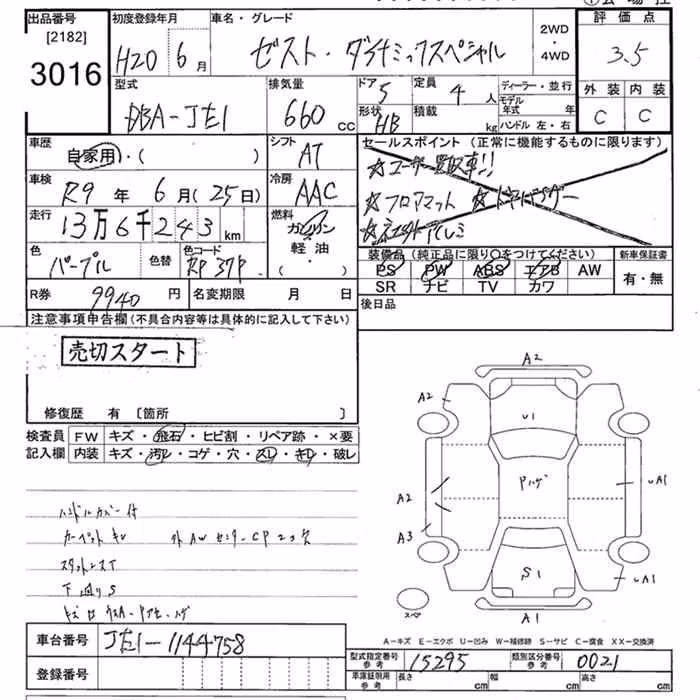 出品番号 初度登録年月 車名・グレード 2WD・4WD 評価点
[2182]
3016 H20 6月 ゼスト・ダイナミックスペシャル 3.5
型式 排気量 ドア 5 定員 4人 ディーラー・並行 外装 内装
DBA-JE1 660cc 形状 HB 積載 kg モデル年式 年 ハンドル 左・右 C C
車歴 自家用・( ) シフト AT セールスポイント(正常に機能するものに限ります)
☆ユーザー買取車!!
車検 R9年 6月(25日) 冷房 AAC ☆フロアマット ☆ドアバイザー
走行 13万6千243km 燃料 ガソリン・軽油・( )
色 パープル 色替 色コード RP37P 装備品(純正品に限り○をつけてください) 新車保証書
PS PW ABS エアB AW 有・無
R券 9940円 名変期限 月 日 SR ナビ TV カワ
注意事項申告欄(不具合内容等は具体的に記入して下さい) 後日品
売切スタート
修復歴 有 [箇所 ]
検査員記入欄 FW キズ・飛石・ヒビ割・リペア跡・×要
内装 キズ・汚レ・コゲ・穴・スレ・キレ・破レ
ハンドルカバー付
カーペットキレ 外AWセンターCP2コ欠
下廻りS
A2
A2
U1
A2 Pハゲ UA1
A3
S1 UA1
スペア A1
A-キズ E-エクボ U-凹み W-補修跡 S-サビ C-腐食 XX-交換済
車台番号 JE1-1144758 型式指定番号 参考 15295 類別区分番号 参考 0021
登録番号 車庫証明用 参考 長さ cm 幅 cm 高さ cm